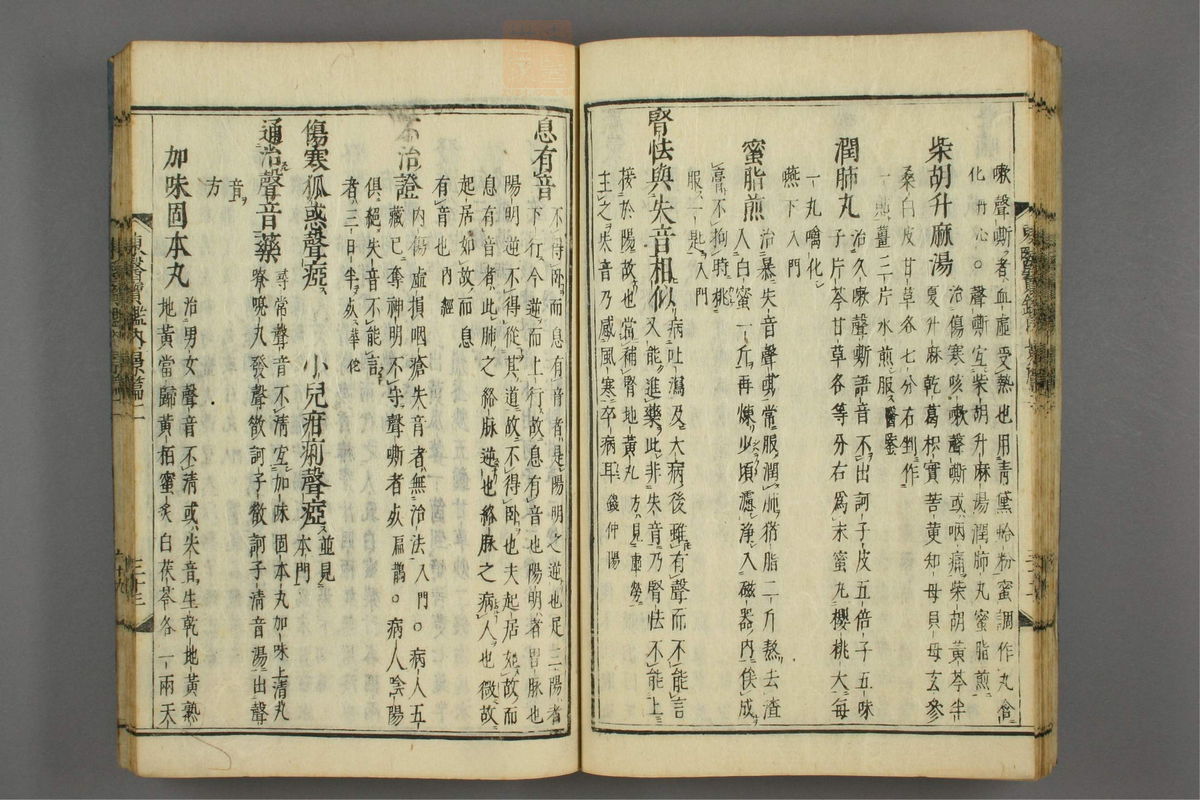 嗽聲嘶者血虛受熱也用青黛蛤粉蜜調作丸含
化丹心○聲嘶宜柴胡升麻湯潤肺丸蜜脂煎
柴胡升麻湯 治傷寒咳嗽聲嘶或咽痛柴胡黃芩半
夏升麻乾葛枳實苦黃知母貝母玄參
桑白皮甘草各七分右剉作
一貼薑三片水煎服醫鑑
潤肺丸 治久嗽聲嘶語音不出訶子皮五倍子五味
子片芩甘草各等分右爲末蜜丸櫻桃大每
一丸噙化
嚥下入門
蜜脂煎 治暴失音聲嘶常服潤肺猪脂二斤熬去渣
入白蜜一斤再煉少頃濾淨入磁器內俟成
膏不拘時挑
服一匙入門
腎怯與失音相似 病吐瀉及大病後雖有聲而不能言
又能進藥此非失音乃腎怯不能上
接於陽故也當補腎地黃丸方見虛勞
主之失音乃感風寒卒病耳錢仲陽
息有音 不得臥而息有音者是陽明之逆也足三陽者
下行今逆而上行故息有音也陽明者胃脉也
陽明逆不得從其道故不得臥也夫起居如故而
息有音者此肺之絡脉逆也絡脉之病人也微故
起居如故而息
有音也內經
不治證 內傷虛損咽瘡失音者無治法入門○病人五
藏已奪神明不守聲嘶者死扁鵲○病人陰陽
俱絕失音不能言
者三日半死華佗
傷寒狐惑聲瘂 小兒疳痢聲瘂 並見本門
通治聲音藥 尋常聲音不清宜加味固本丸加味上清丸
嘹喨丸發聲散訶子散訶子清音湯出聲
音
方
加味固本丸 治男女聲音不清或失音生乾地黃熟
地黃當歸黃栢蜜炙白茯苓各一兩天
東醫寶鑑內景篇二
三十三